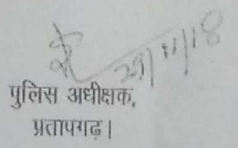 29/11/18
पुलिस अधीक्षक,
प्रतापगढ़।